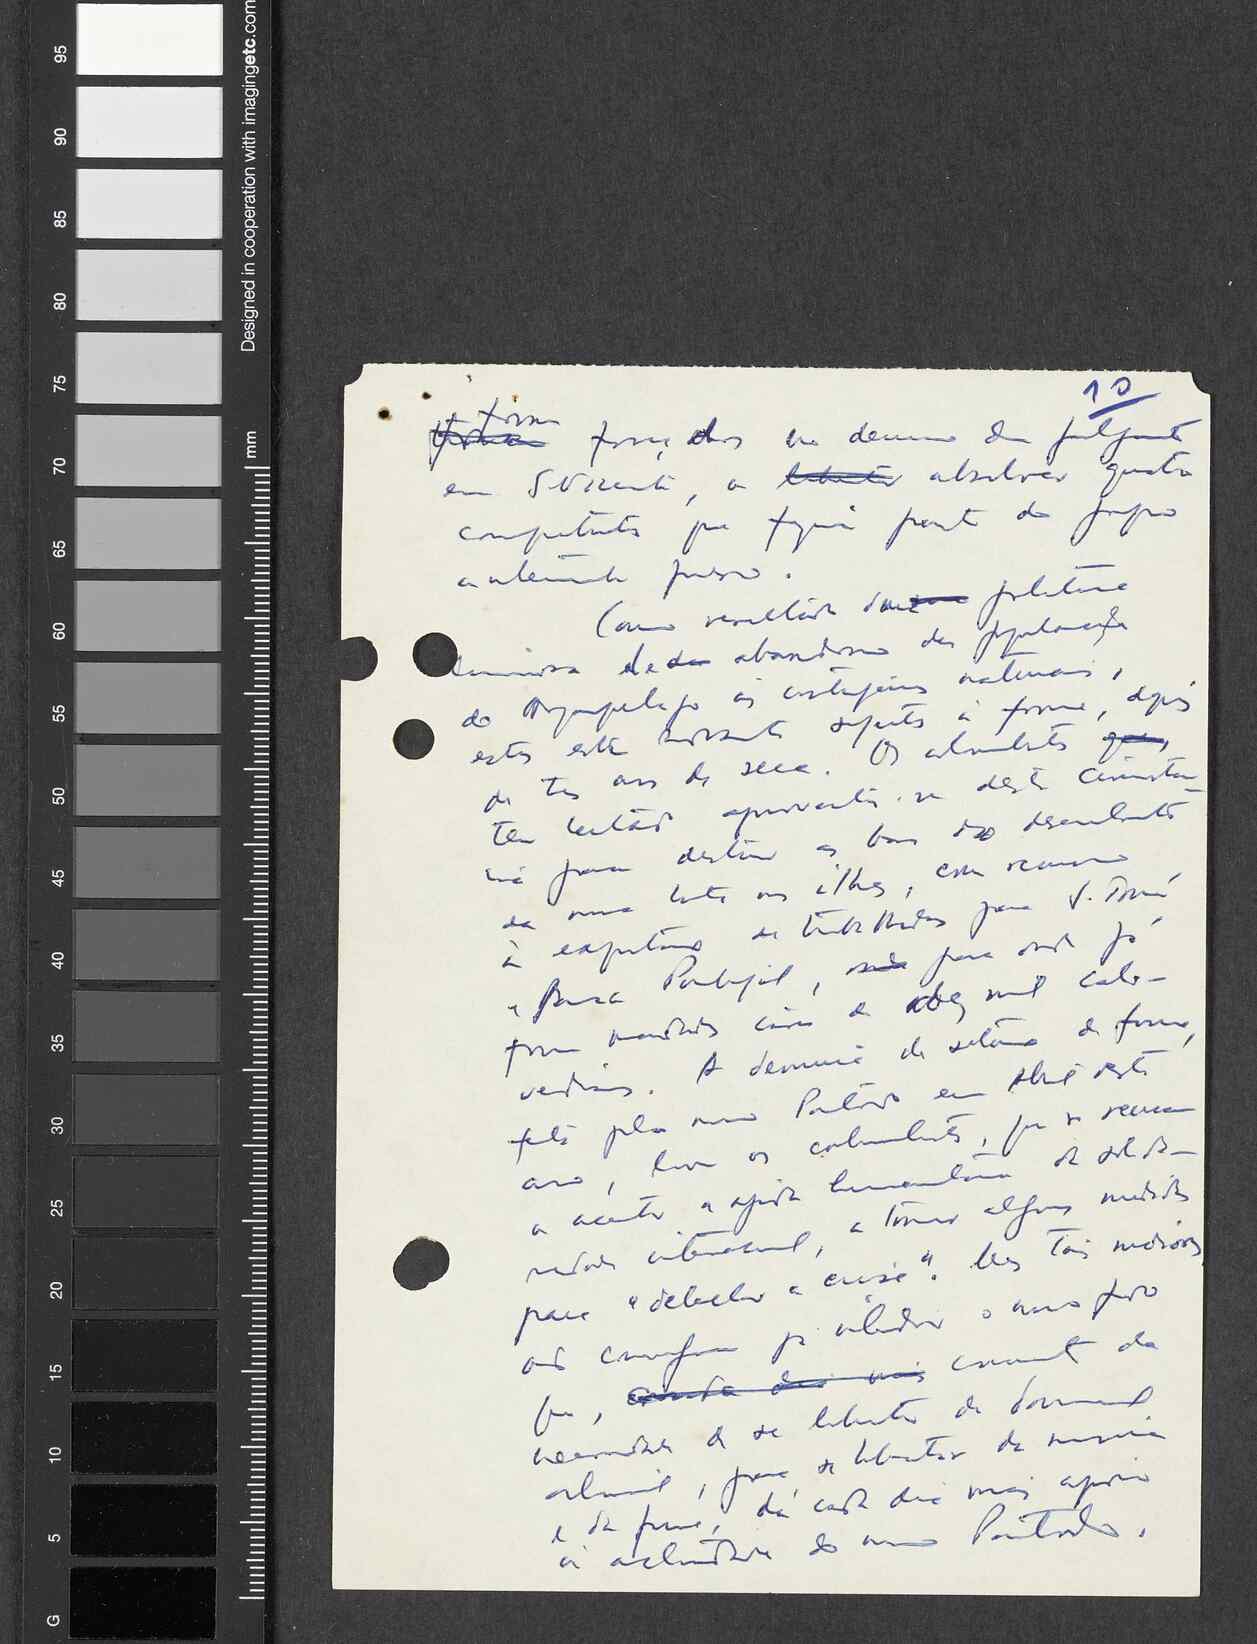 95
90
85
80
75
70
65
60
55
50
45
40
35
30
25
20
15
10
5
G
Designed in cooperation with imagingetc.com
mm
10
foram forçados no decurso do julgamento
em S. Vicente, a absolver quatro
compatriotas que faziam parte do grupo
anteriormente preso.
Como resultado duma política
criminosa de abandono das populações
do Arquipélago às contingências naturais,
estas estão sujeitas à fome, depois
de três anos de seca. Os colonialistas
têm tentado aproveitar-se desta circunstân-
cia para destruir as bases do desenvolvimento
da nossa luta nas ilhas, com recurso
à exportação de trabalhadores para S. Tomé
e para Portugal, para onde já
foram mandados cerca de dez mil cabo-
verdianos. A denúncia da situação de fome,
feita pelo nosso Partido em Abril deste
ano, levou os colonialistas, que se recusam
a aceitar a ajuda humanitária da solida-
riedade internacional, a tomar algumas medidas
para "debelar a crise". Mas tais medidas
não conseguem já iludir o nosso povo
que, consciente da
necessidade de se libertar do domínio
colonial, para se libertar da miséria
e da fome, dá cada dia mais apoio
à actividade do nosso Partido.